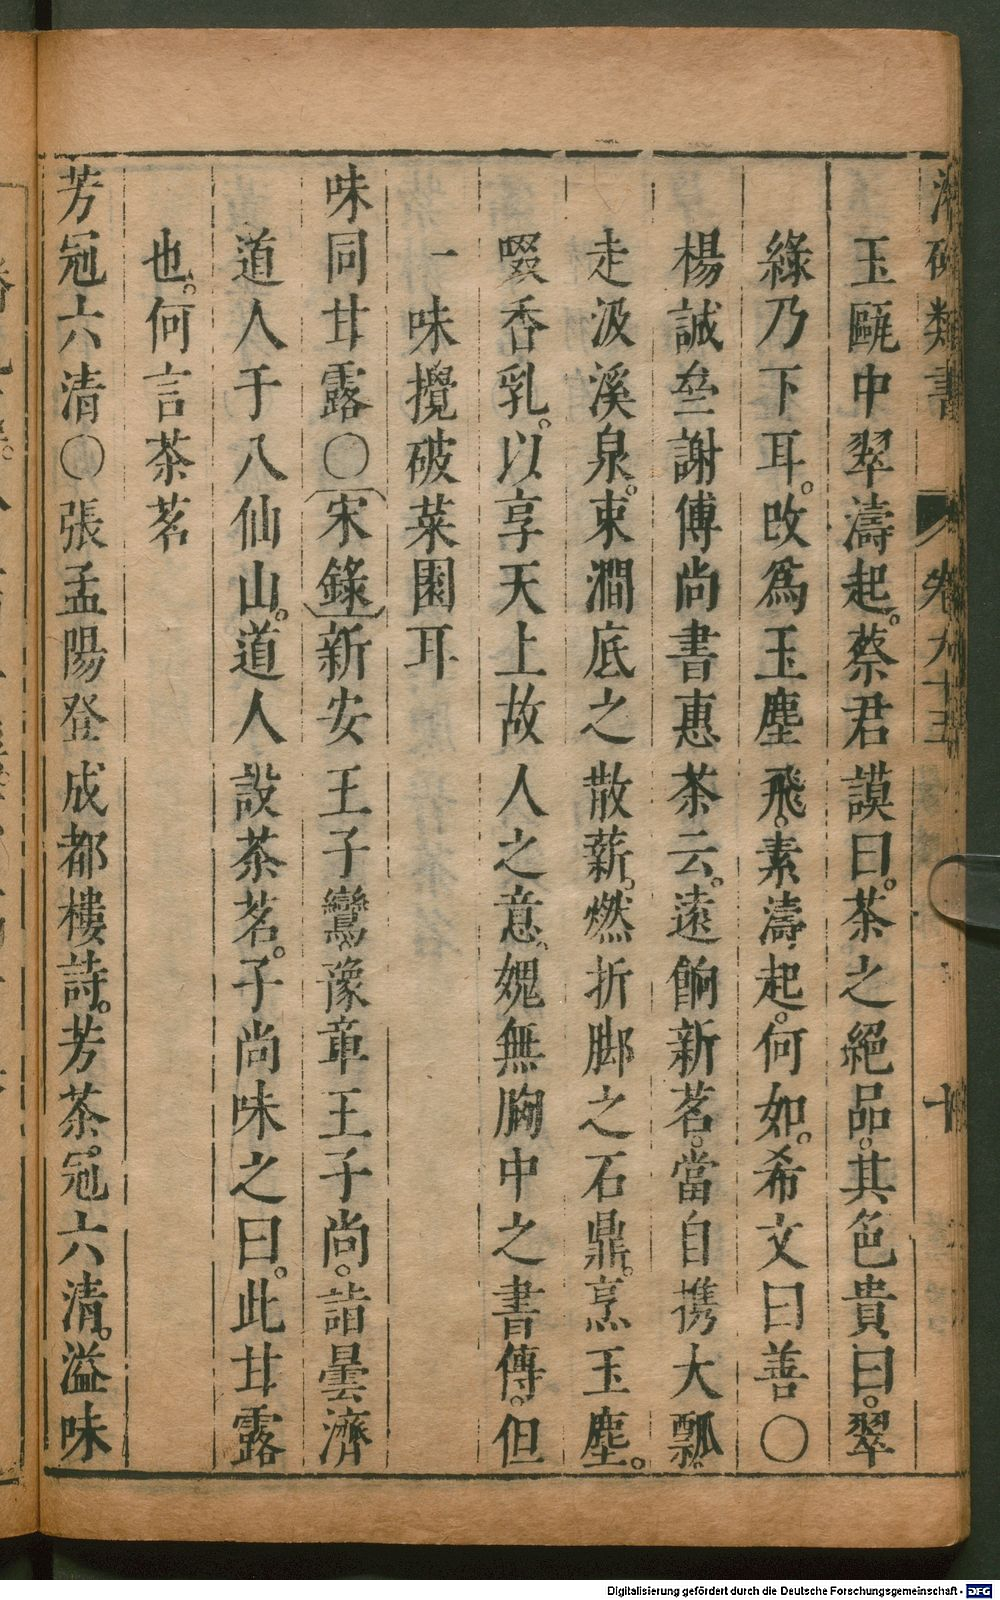 玉甌中翠濤起。蔡君謨曰。茶之絕品。其色貴曰。翠
綠乃下耳。改爲玉塵飛。素濤起。何如。希文曰善〇
楊誠叁謝傅尚書惠茶云。遠餉新茗。當自携大瓢
走汲溪泉。束澗底之散薪。燃折脚之石鼎。烹玉塵。
啜香乳。以享天上故人之意。媿無胸中之書傳。但
一味攪破菜園耳
味同甘露〇〔宋錄〕新安王子鸞。豫章王子尚。詣曇濟
道人于八仙山。道人設茶茗。子尚味之曰。此甘露
也。何言茶茗
芳冠六清〇張孟陽登成都樓詩。芳茶。冠六清。溢味
類書 卷九十五 十
Digitalisierung gefördert durch die Deutsche Forschungsgemeinschaft - DFG